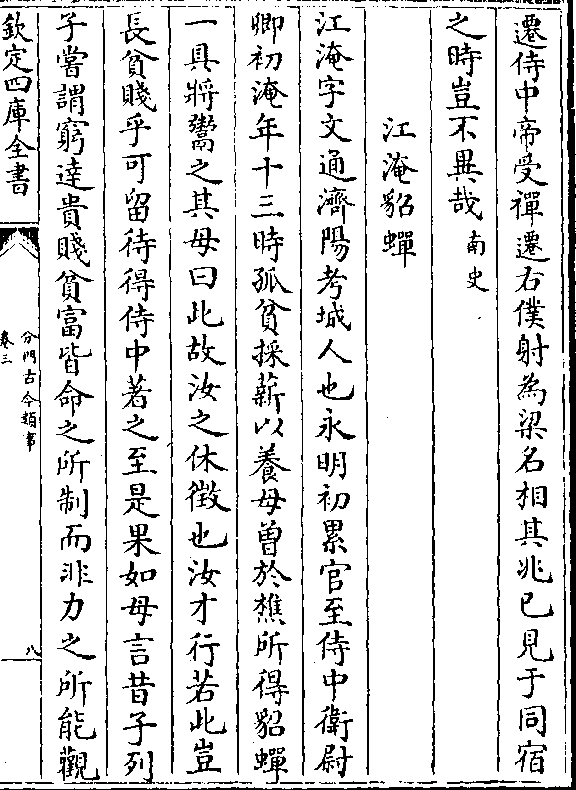 遷侍中帝受禪遷右僕射為梁名相其兆已見于同宿
之時豈不異哉南史
江淹貂蟬
江淹字文通濟陽考城人也永明初累官至侍中衛尉
卿初淹年十三時孤貧採薪以養母曽於樵所得貂蟬
一具將鬻之其母曰此故汝之休徵也汝才行若此豈
長貧賤乎可留待得侍中著之至是果如母言昔子列
子嘗謂窮達貴賤貧富皆命之所制而非力之所能觀
欽定四庫全書
分門古今類事
卷三
八